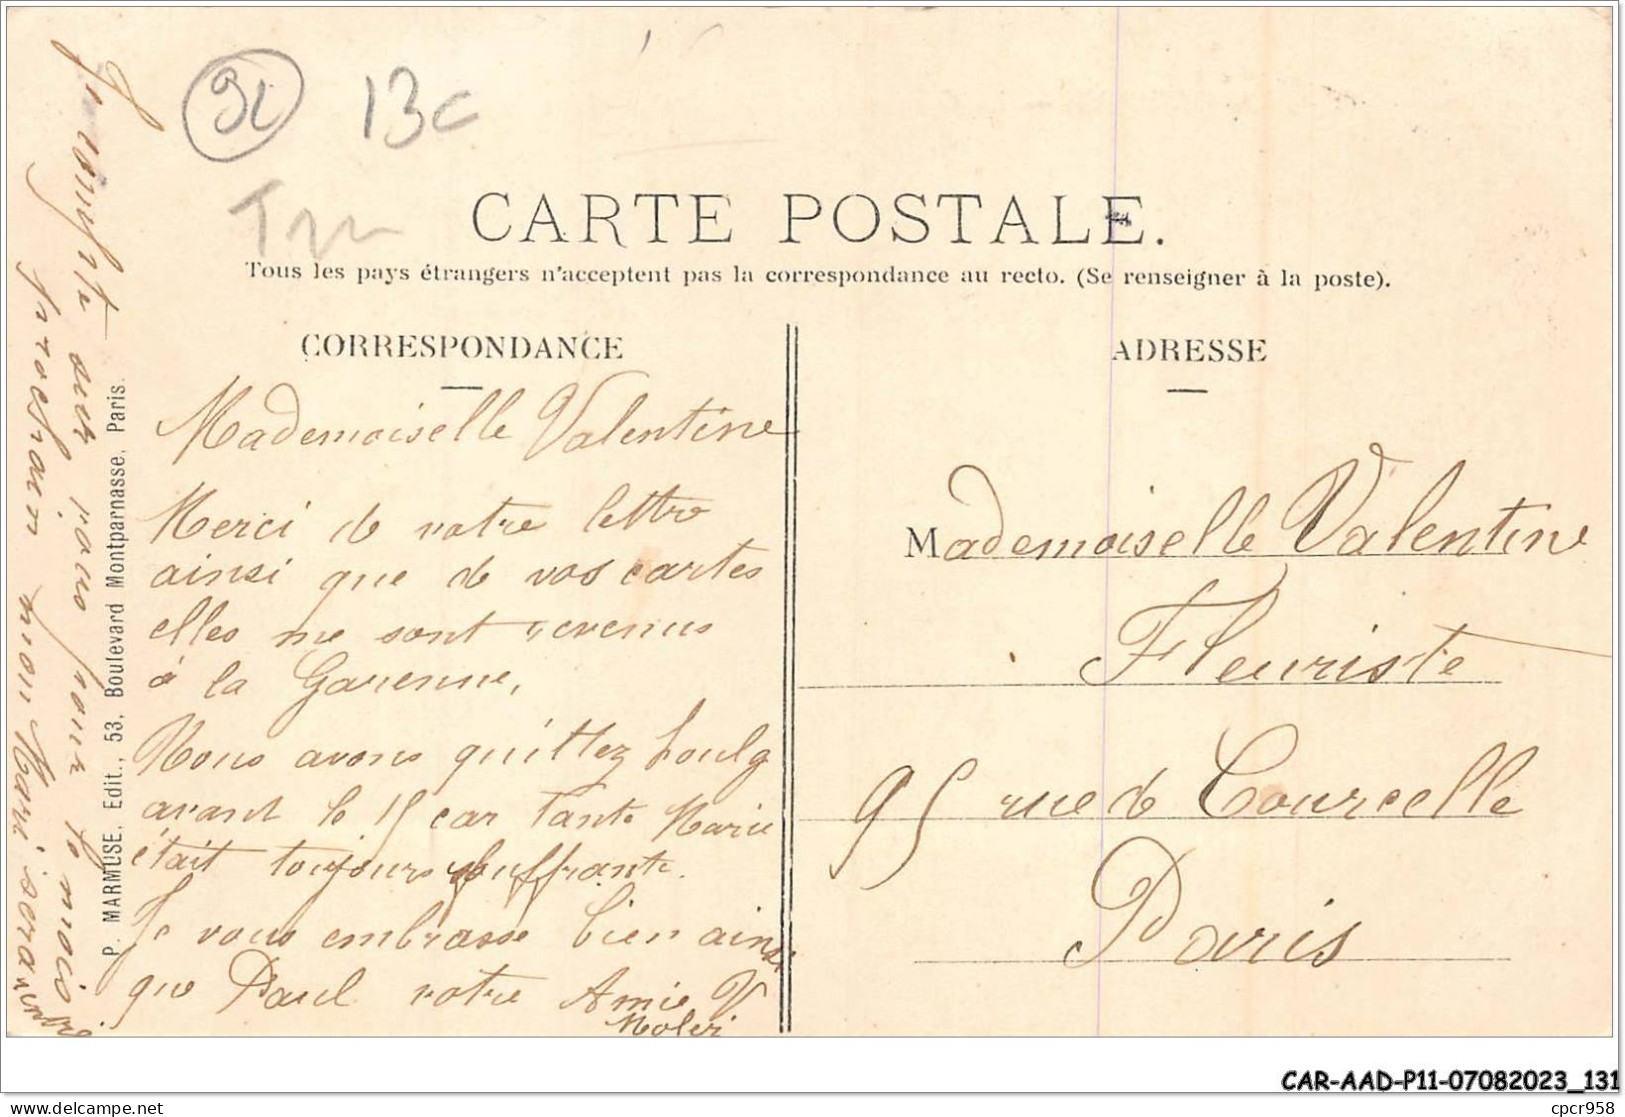 13c
CARTE POSTALE.
Tous les pays étrangers n'acceptent pas la correspondance au recto. (Se renseigner à la poste).
CORRESPONDANCE
Mademoiselle Valentine
Merci de votre lettre
ainsi que de vos cartes
elles me sont revenus
à la Garenne,
Nous avons quittez houlg
avant le 15 car Tante Marie
était toujours souffrante.
Je vous embrasse bien ainsi
que Paul votre Amie V
Je compte sur vous pour le mois
prochain mon Mari sera rentré
P. MARMUSE, Edit., 53, Boulevard Montparnasse, Paris.
ADRESSE
Mademoiselle Valentine
Fleuriste
95 rue de Courcelle
Paris
CAR-AAD-P11-07082023_131
delcampe.net
cpcr958